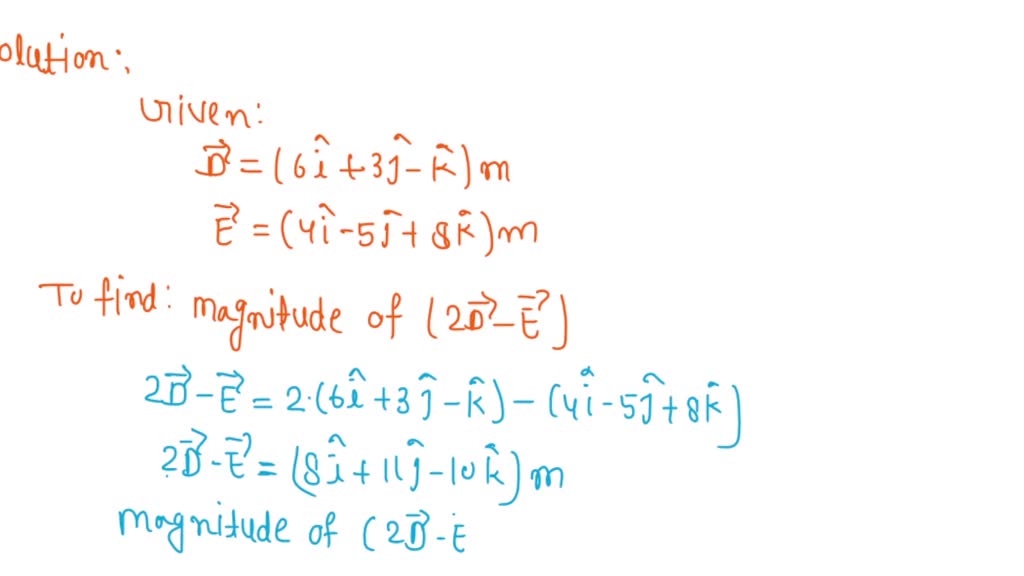 olution:
Given:
D⃗ = (6î + 3ĵ - k̂) m
E⃗ = (4î - 5ĵ + 8k̂) m
To find: magnitude of (2D⃗ - E⃗)
2D⃗ - E⃗ = 2·(6î + 3ĵ - k̂) - (4î - 5ĵ + 8k̂)
2D⃗ - E⃗ = (8î + 11ĵ - 10k̂) m
magnitude of (2D⃗ - E